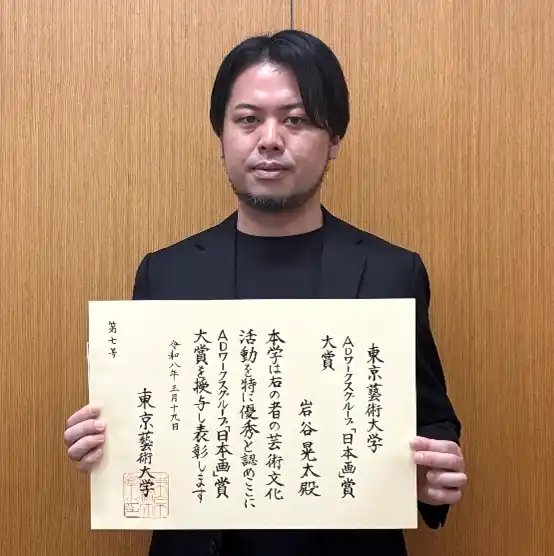 東京藝術大学
ADワークスグループ「日本画」賞
大賞
岩谷晃太殿
本学は右の者の芸術文化
活動を特に優秀と認めここに
ADワークスグループ「日本画」賞
大賞を授与し表彰します
令和八年三月十九日
東京藝術大学
第七号